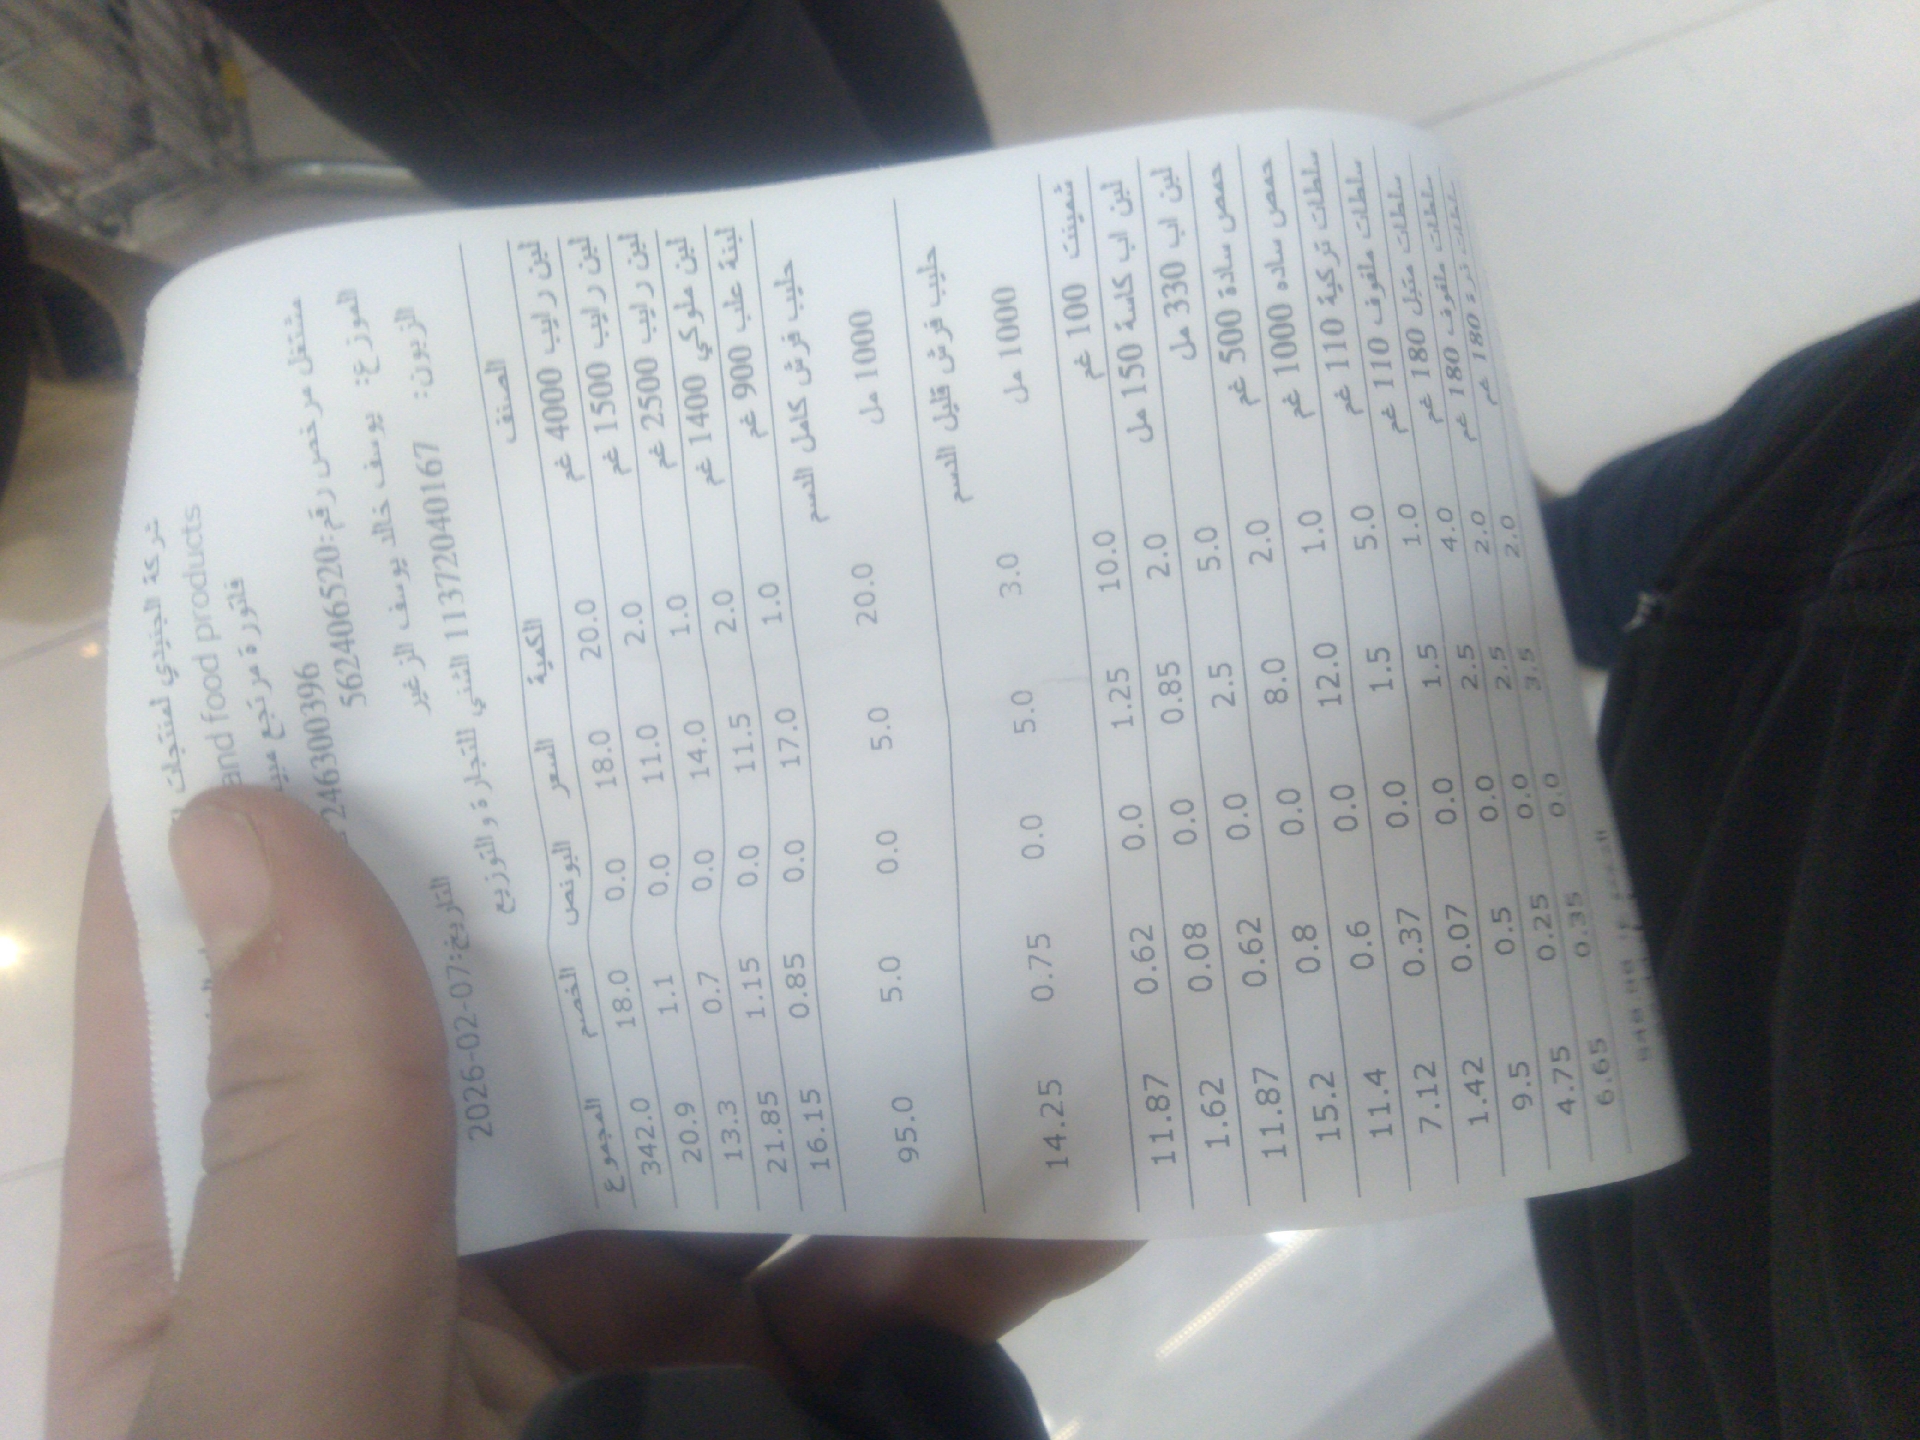 شركة الجنيدي لمنتجات
and food products
فاتورة مرتجع مبيعات
مشتغل مرخص رقم:562406520
الموزع: يوسف خالد يوسف الزغير
الزبون: 1137204040167 الشني للتجارة والتوزيع
التاريخ:07-02-2026
الصنف الكمية السعر البونص الخصم المجموع
لبن رايب 4000 غم 20.0 18.0 0.0 18.0 342.0
لبن رايب 1500 غم 2.0 11.0 0.0 1.1 20.9
لبن رايب 2500 غم 1.0 14.0 0.0 0.7 13.3
لبن ملوكي 1400 غم 2.0 11.5 0.0 1.15 21.85
لبنة علب 900 غم 1.0 17.0 0.0 0.85 16.15
حليب فرش كامل الدسم
1000 مل 20.0 5.0 0.0 5.0 95.0
حليب فرش قليل الدسم
1000 مل 3.0 5.0 0.0 0.75 14.25
شمينت 100 غم 10.0 1.25 0.0 0.62 11.87
لبن اب كاسة 150 مل 2.0 0.85 0.0 0.08 1.62
لبن اب 330 مل 5.0 2.5 0.0 0.62 11.87
حمص سادة 500 غم 2.0 8.0 0.0 0.8 15.2
حمص ساده 1000 غم 1.0 12.0 0.0 0.6 11.4
سلطات تركية 110 غم 5.0 1.5 0.0 0.37 7.12
سلطات ملفوف 110 غم 1.0 1.5 0.0 0.07 1.42
سلطات متبل 180 غم 4.0 2.5 0.0 0.5 9.5
سلطات ملفوف 180 غم 2.0 2.5 0.0 0.25 4.75
سلطات ذرة 180 غم 2.0 3.5 0.0 0.35 6.65